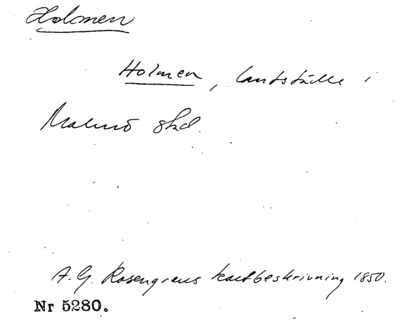 Holmen
Holmen, landställe i
Malmö stad.
A. G. Rosengrens kartbeskrivning 1850.
Nr 5280.